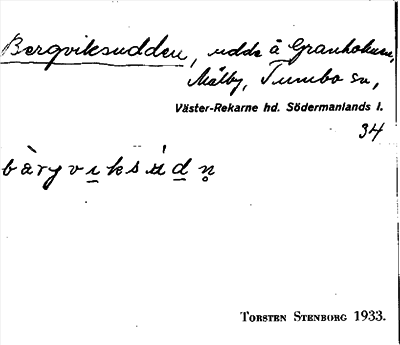 Bergviksudden, udde å Granholmen,
Mälby, Tumbo sn,
Väster-Rekarne hd. Södermanlands l.
34
bàryviksúdn̥
TORSTEN STENBORG 1933.